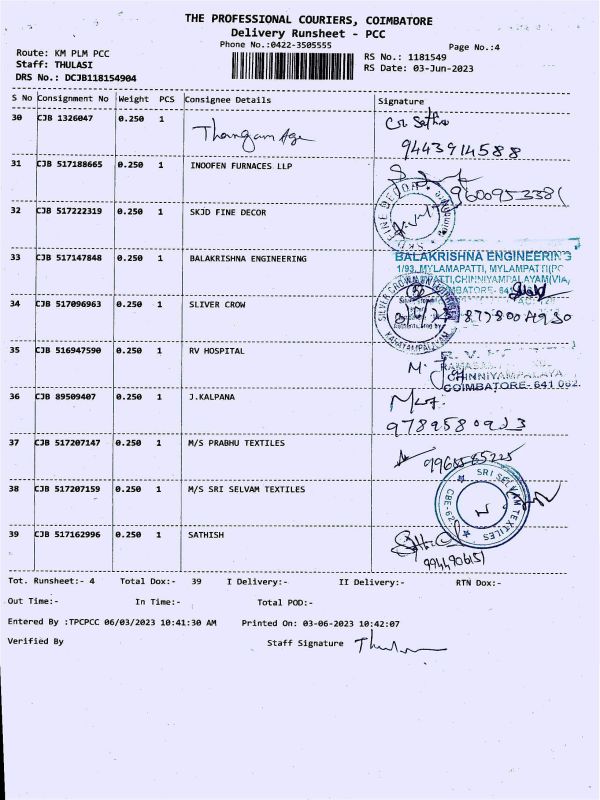 THE PROFESSIONAL COURIERS, COIMBATORE
Delivery Runsheet - PCC
Phone No.:0422-3505555
Page No.:4
Route: KM PLM PCC
RS No.: 1181549
Staff: THULASI
RS Date: 03-Jun-2023
DRS No.: DCJB118154904
S No Consignment No Weight PCS Consignee Details Signature
30 CJB 1326047 0.250 1
9443914588
31 CJB 517188665 0.250 1 INOOFEN FURNACES LLP
9600953381
32 CJB 517222319 0.250 1 SKJD FINE DECOR
SKJD FINE DECOR
33 CJB 517147848 0.250 1 BALAKRISHNA ENGINEERING
BALAKRISHNA ENGINEERING
1/93, MYLAMAPATTI, MYLAMPATTI(PO
CHINNIYAMPALAYAM(VIA,
34 CJB 517096963 0.250 1 SLIVER CROW
35 CJB 516947590 0.250 1 RV HOSPITAL
CHINNIYAMPALAYA
COIMBATORE- 641 062.
36 CJB 89509407 0.250 1 J.KALPANA
9789580923
37 CJB 517207147 0.250 1 M/S PRABHU TEXTILES
38 CJB 517207159 0.250 1 M/S SRI SELVAM TEXTILES
SRI SELVAM TEXTILES
39 CJB 517162996 0.250 1 SATHISH
9944906151
Tot. Runsheet:- 4 Total Dox:- 39 I Delivery:- II Delivery:- RTN Dox:-
Out Time:- In Time:- Total POD:-
Entered By :TPCPCC 06/03/2023 10:41:30 AM Printed On: 03-06-2023 10:42:07
Verified By Staff Signature